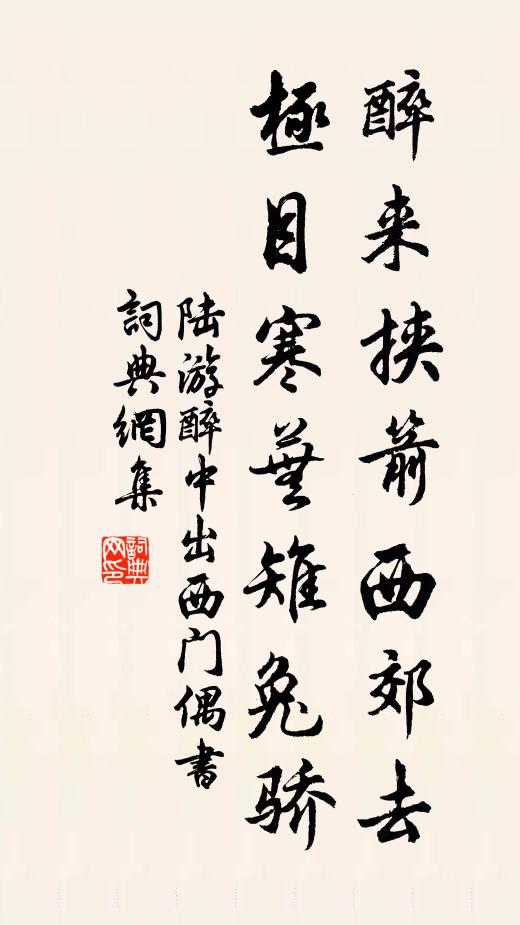 醉来挟箭西郊去
極目寒蕪雉兔骄
陆游醉中出西门偶書
詞典網集
詞典网印